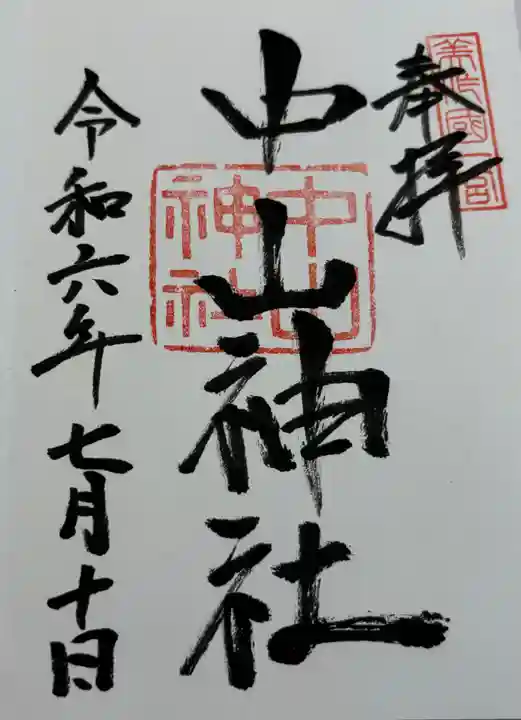 奉拝
美作國一宮
中山神社
中山
神社
令和六年七月十日